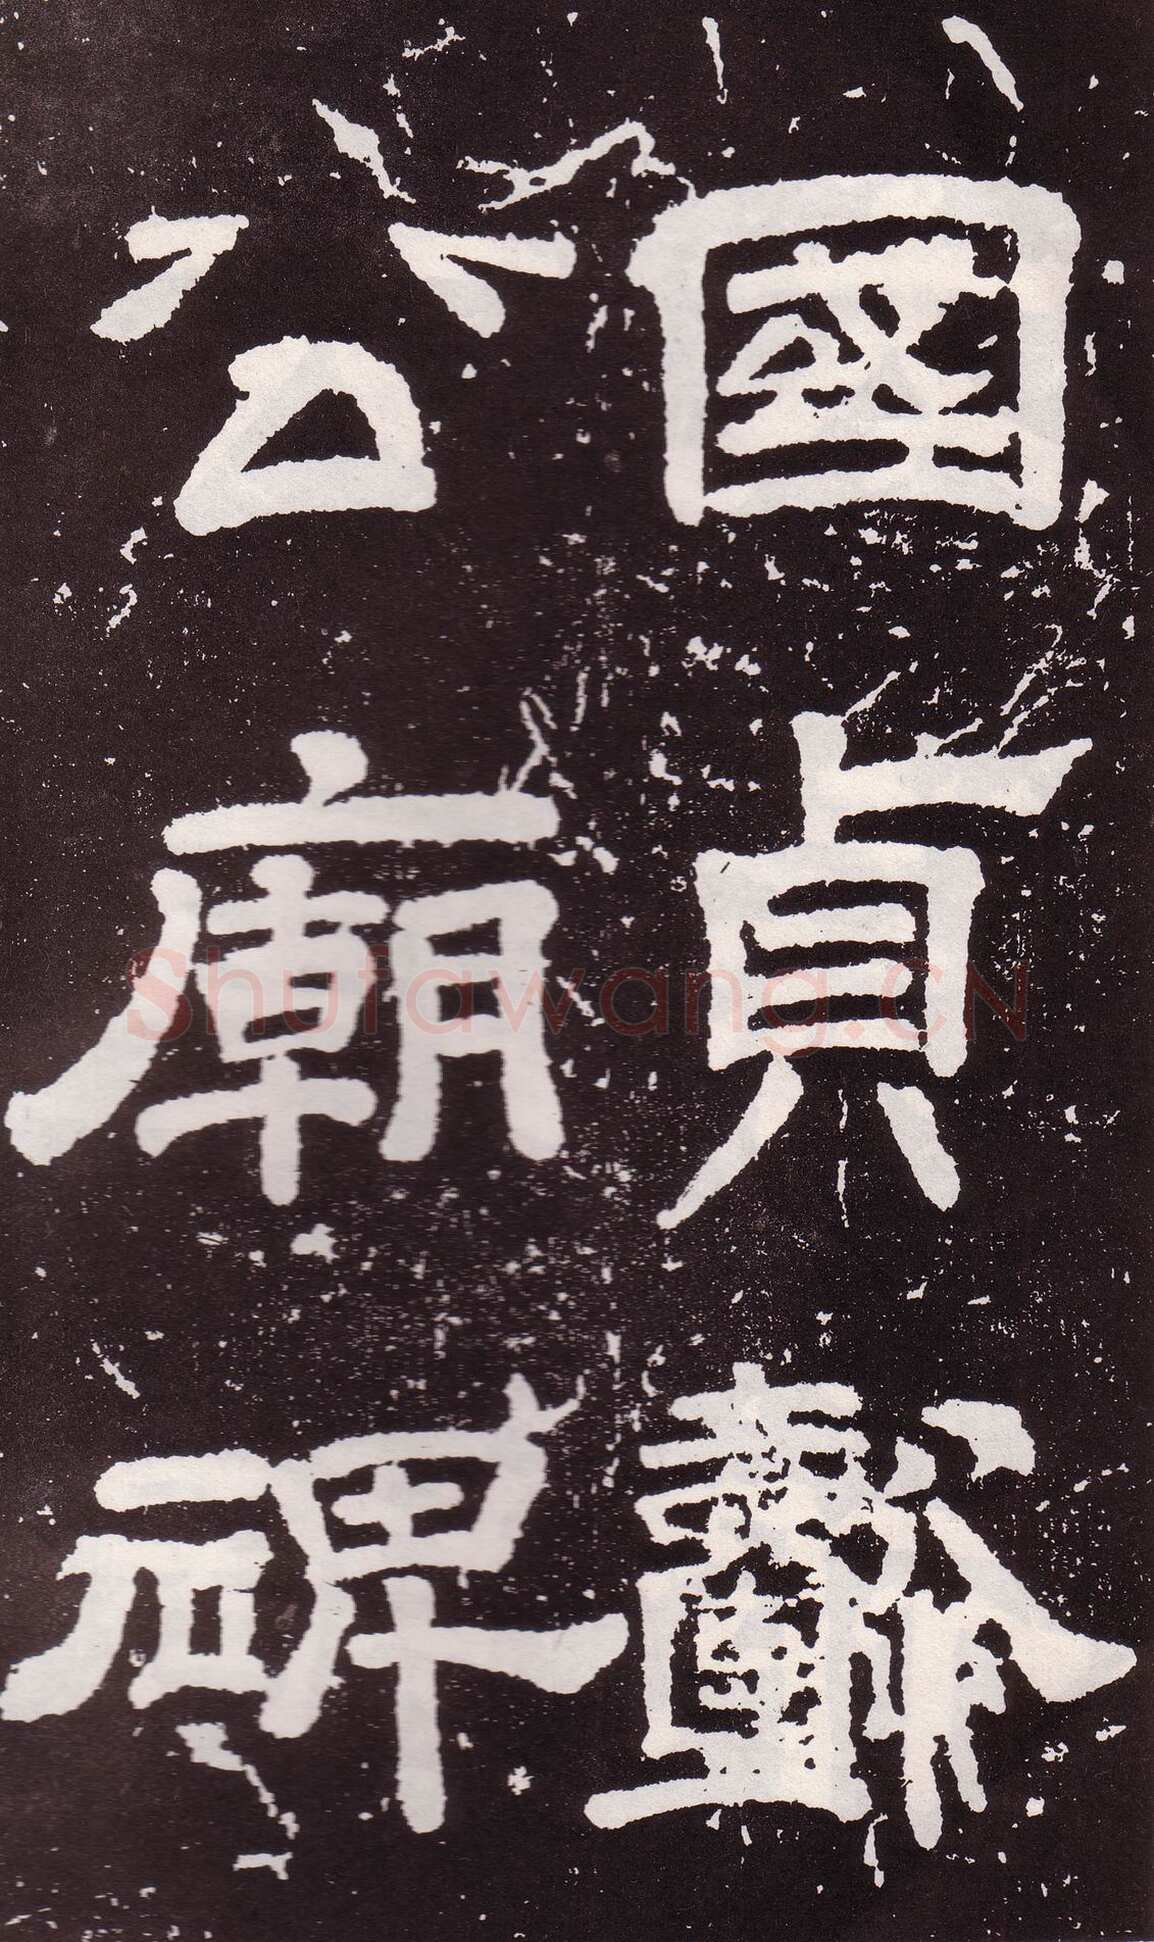 國貞懿
公廟碑
Shufawang.CN